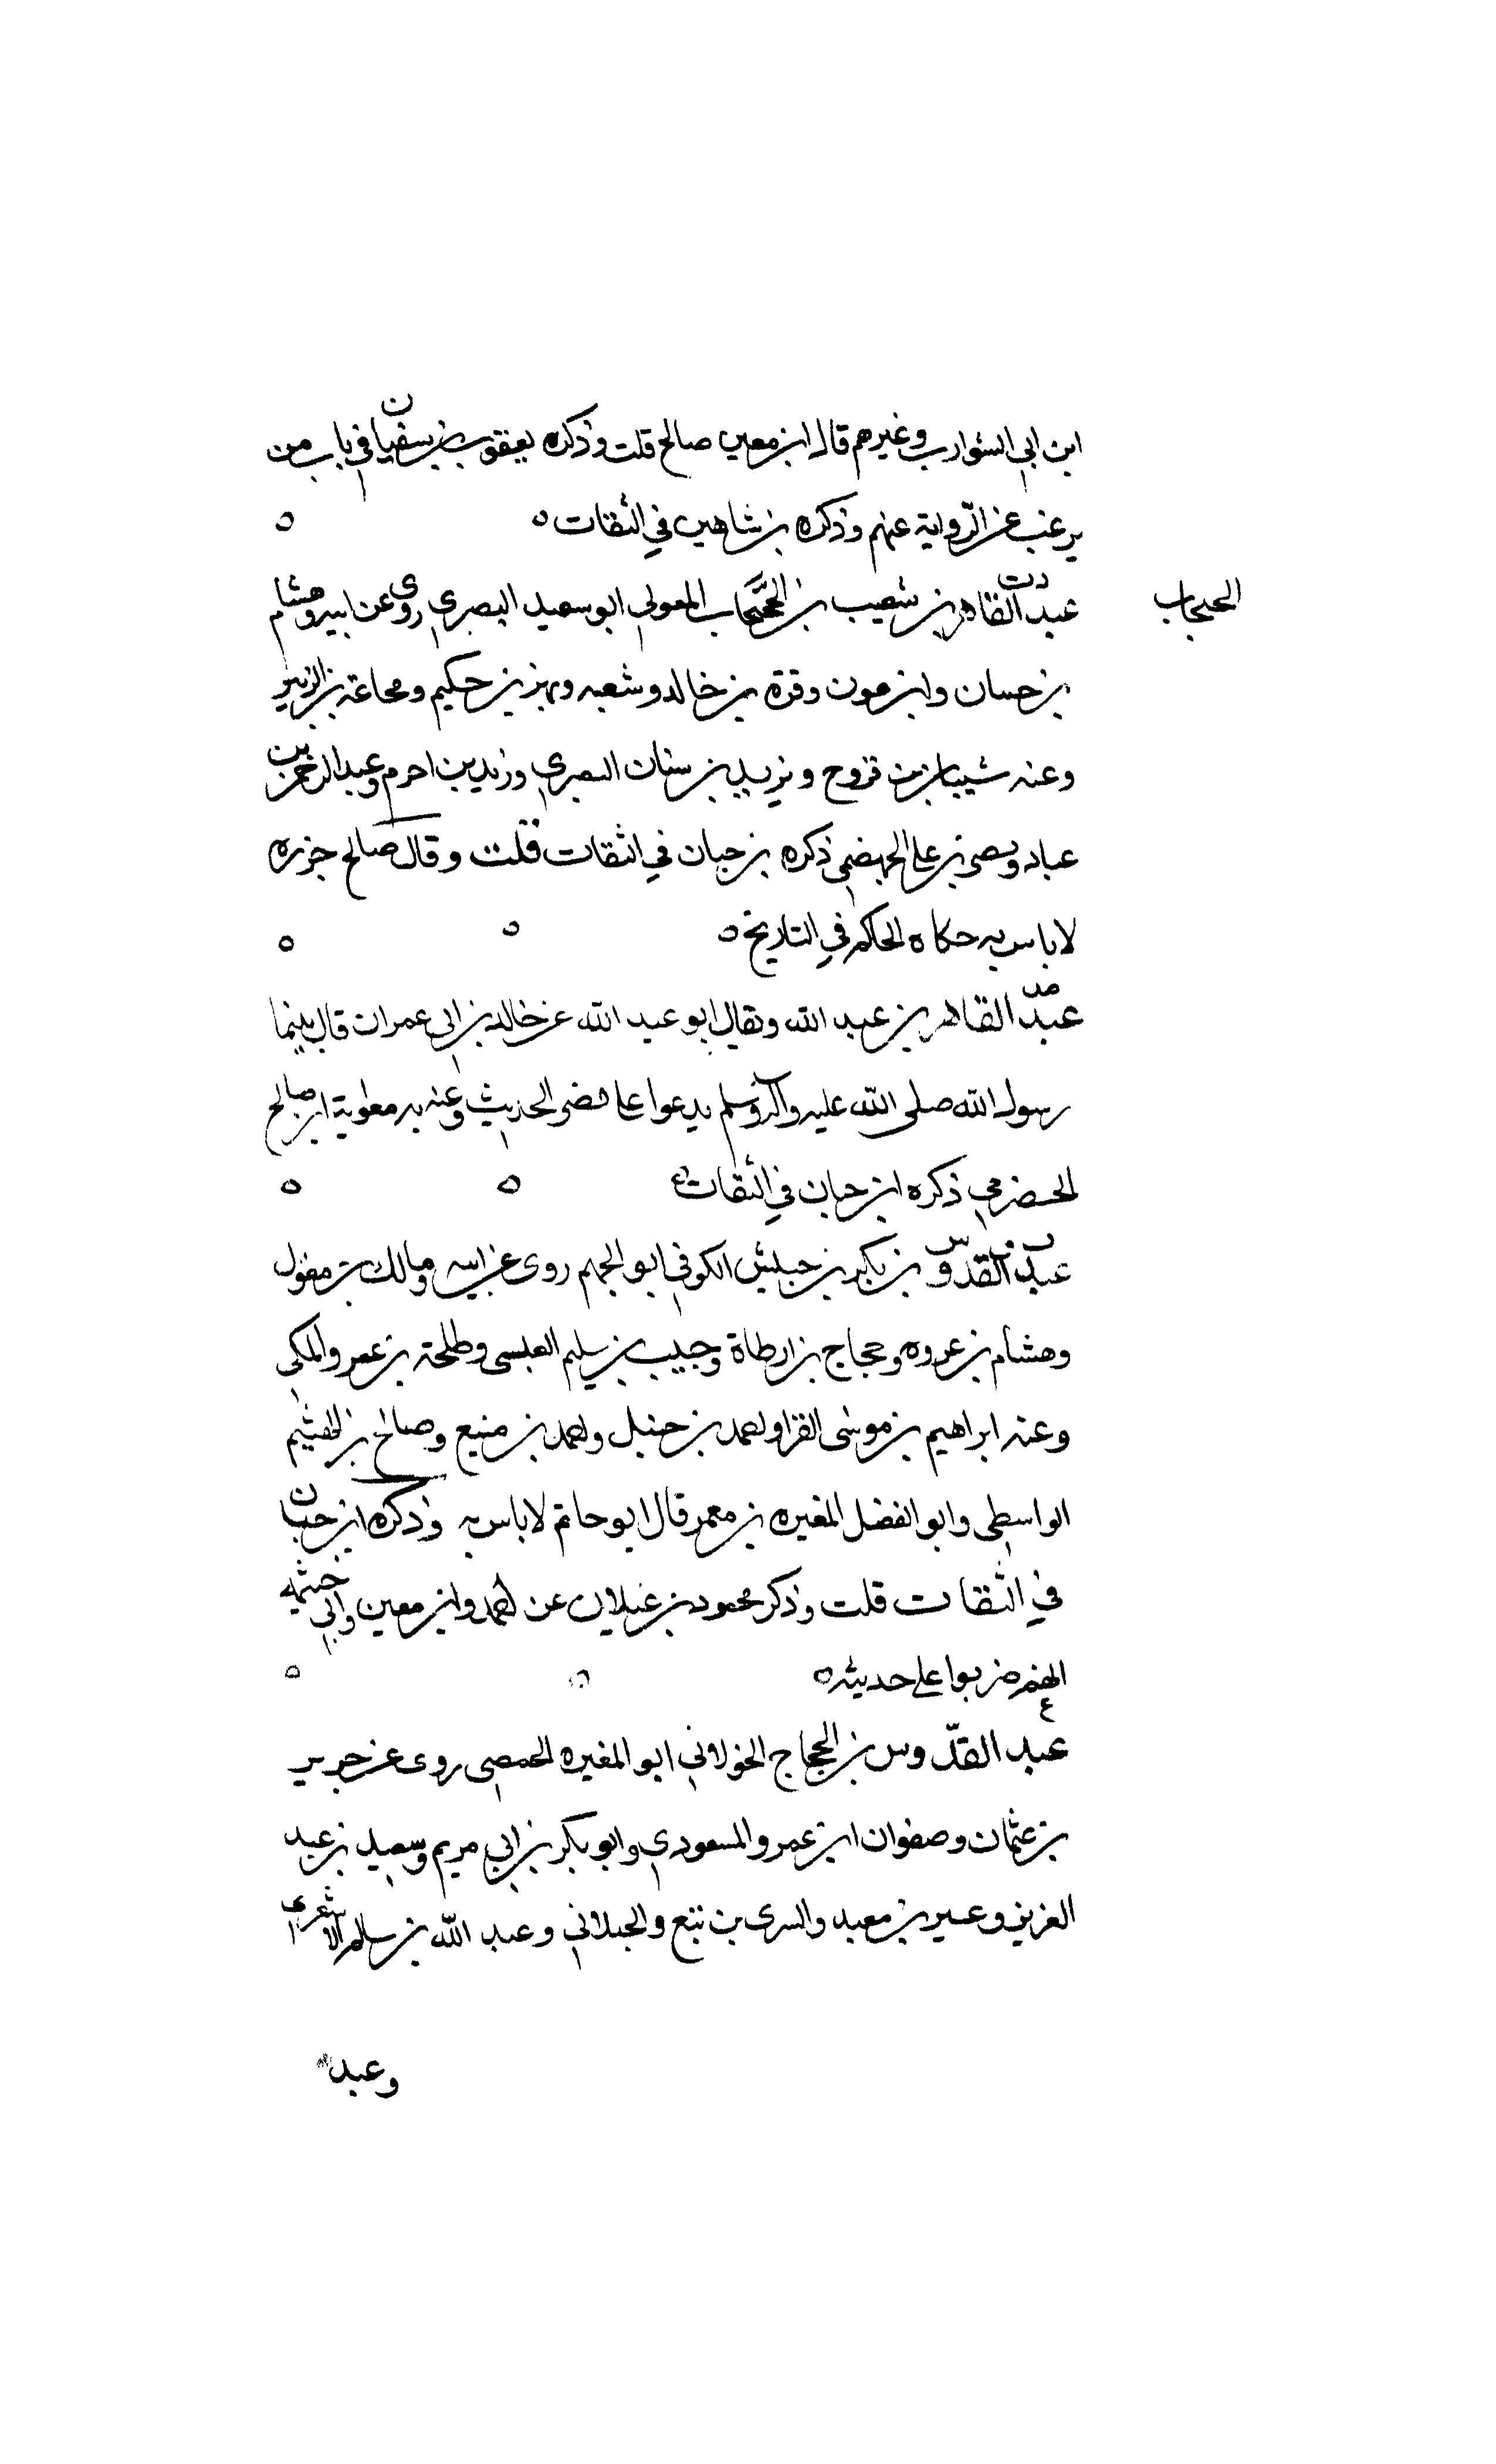 ابن ابى الشوارب وغيرهم قال ابن معين صالح قلت وذكره يعقوب بن سفيان في باب من
يرغب عن الرواية عنهم وذكره بن شاهين في الثقات ه
الحبحاب
د ت
عبد القاهر بن شعيب بن الحبحاب المعولي ابو سعيد البصري روى عن ابيه وهشام
بن حسان وابن عون وقرة بن خالد وشعبه وبهز بن حكيم ومجاعة بن الزبير
وعنه شيبان بن فروح ويزيد بن سنان البصري وزيد بن اخرم وعبد الرحمن بن
عباد ونصر بن على الجهضمي ذكره بن حبان في الثقات قلت وقال صالح جزره
لا باس به حكاه الحاكم في التاريخ ه
مد
عبد القاهر بن عبد الله ويقال ابو عبد الله عن خالد بن ابي عمران قال بينما
رسول الله صلى الله عليه وآله وسلم يدعوا على مضر الحديث وعنه به معاوية ابن صالح
الحضرمي ذكره ابن حبان في الثقات
عبد القدوس بن بكير بن خنيس الكوفي ابو الجهم روى عن ابيه ومالك بن مغول
وهشام بن عروه وحجاج بن ارطاة وحبيب بن سليم العبسى وطلحة بن عمرو المكي
وعنه ابراهيم بن موسى الفرا واحمد بن حنبل واحمد بن منيع وصالح بن الهيثم
الواسطي وابو الفضل المغيره بن معمر قال ابو حاتم لا باس به وذكره ابن حبان
في الثقات قلت وذكر محمود بن غيلان عن احمد وابن معين وابي خيثمه
انهم ضربوا على حديثه ه
ع
عبد القدّوس بن الحجاج الخولاني ابو المغيره الحمصي روى عن حرير
بن عثمان وصفوان ابن عمرو والمسعودي وابو بكر بن ابي مريم وسعيد بن عبد
العزيز وعبير بن معبد والسرى بن ننبع والجبلاني وعبد الله بن سالم الاشعري
وعبد